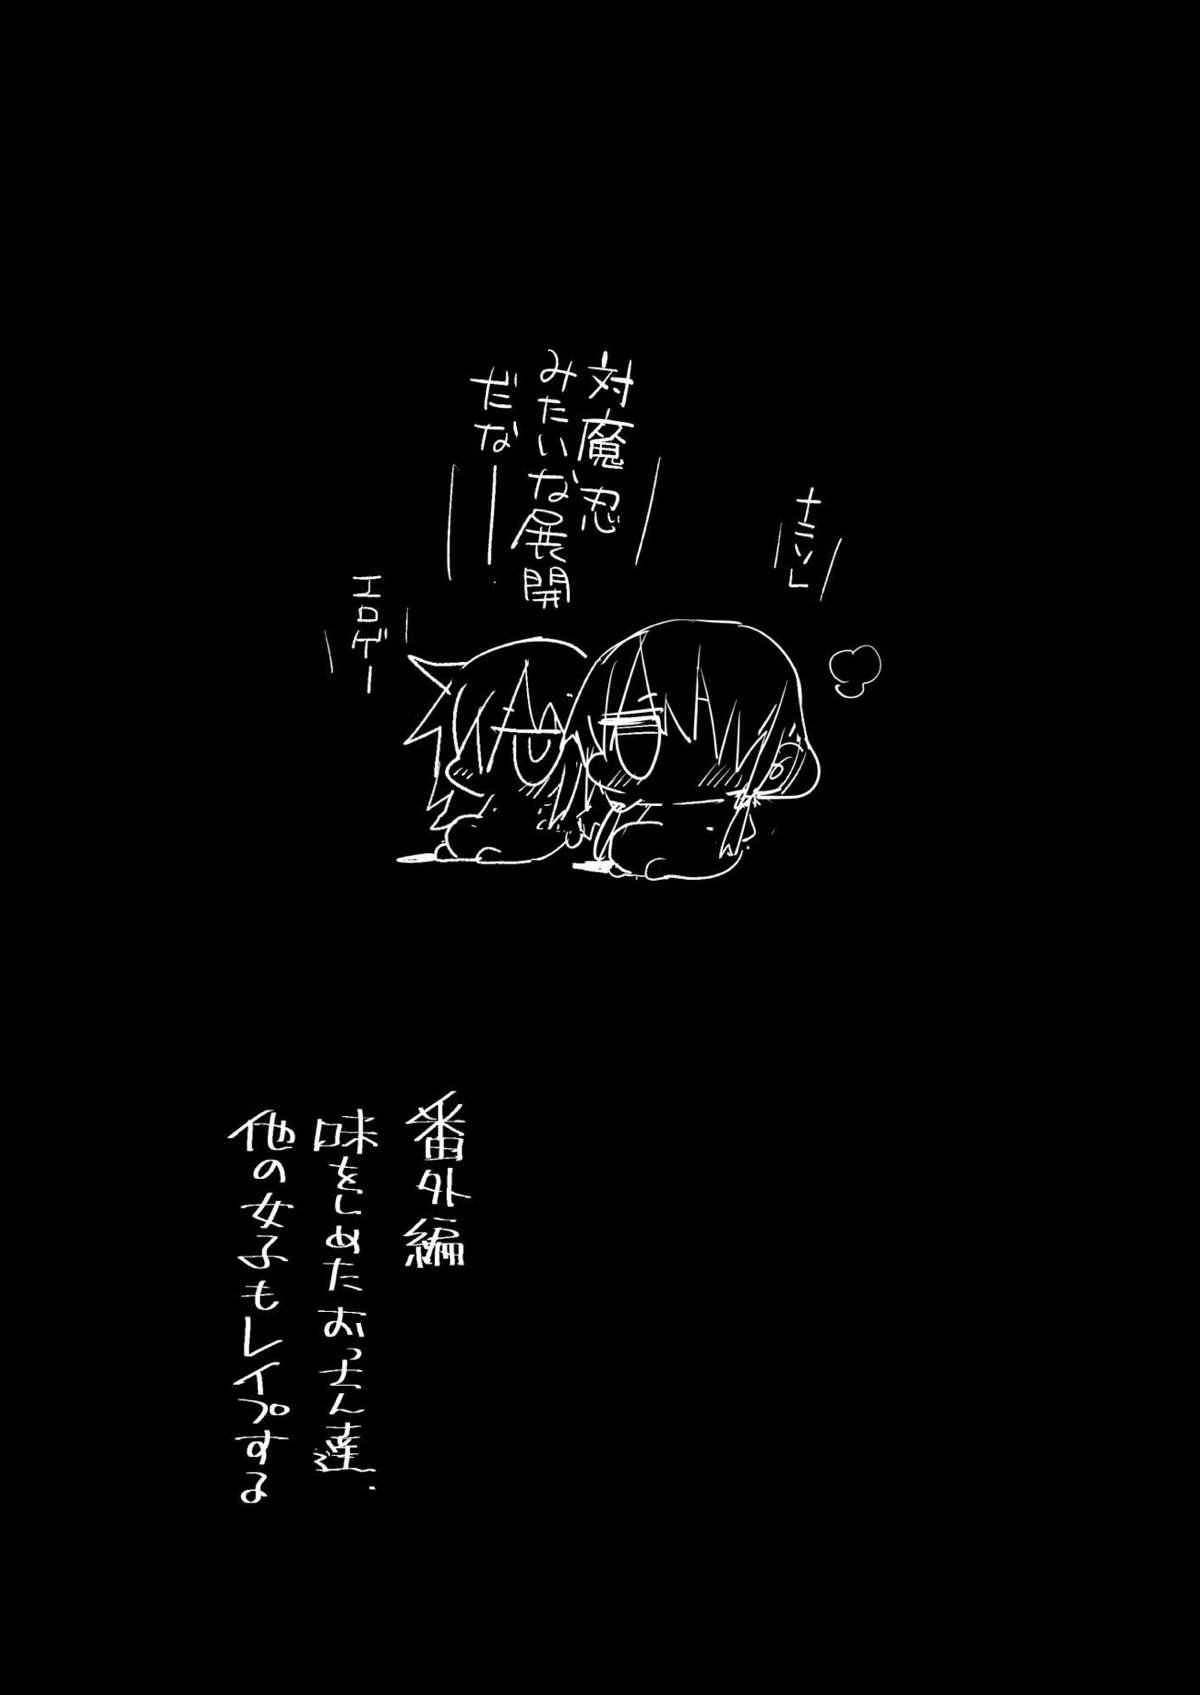 対魔忍
みたいな展開
だなー
ナニソレ
エロゲー
番外編
味をしめたおっさん達、
他の女子もレイプする